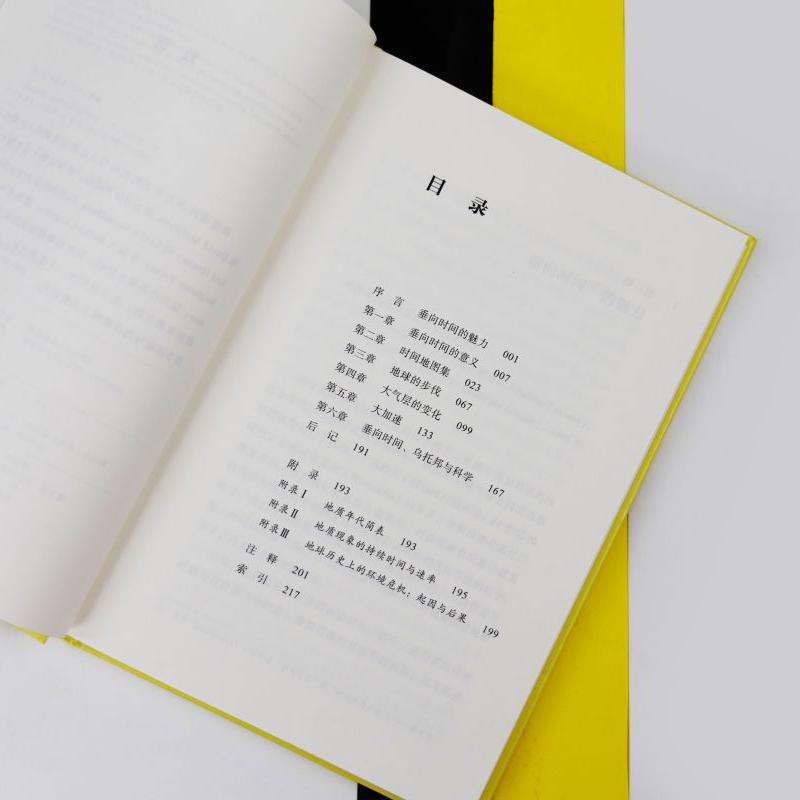 目 录
序 言 垂向时间的魅力 001
第一章 垂向时间的意义 007
第二章 时间地图集 023
第三章 地球的步伐 067
第四章 大气层的变化 099
第五章 大加速 133
第六章 垂向时间、乌托邦与科学 167
后 记 191
附 录 193
附录Ⅰ 地质年代简表 193
附录Ⅱ 地质现象的持续时间与速率 195
附录Ⅲ 地球历史上的环境危机：起因与后果 199
注 释 201
索 引 217